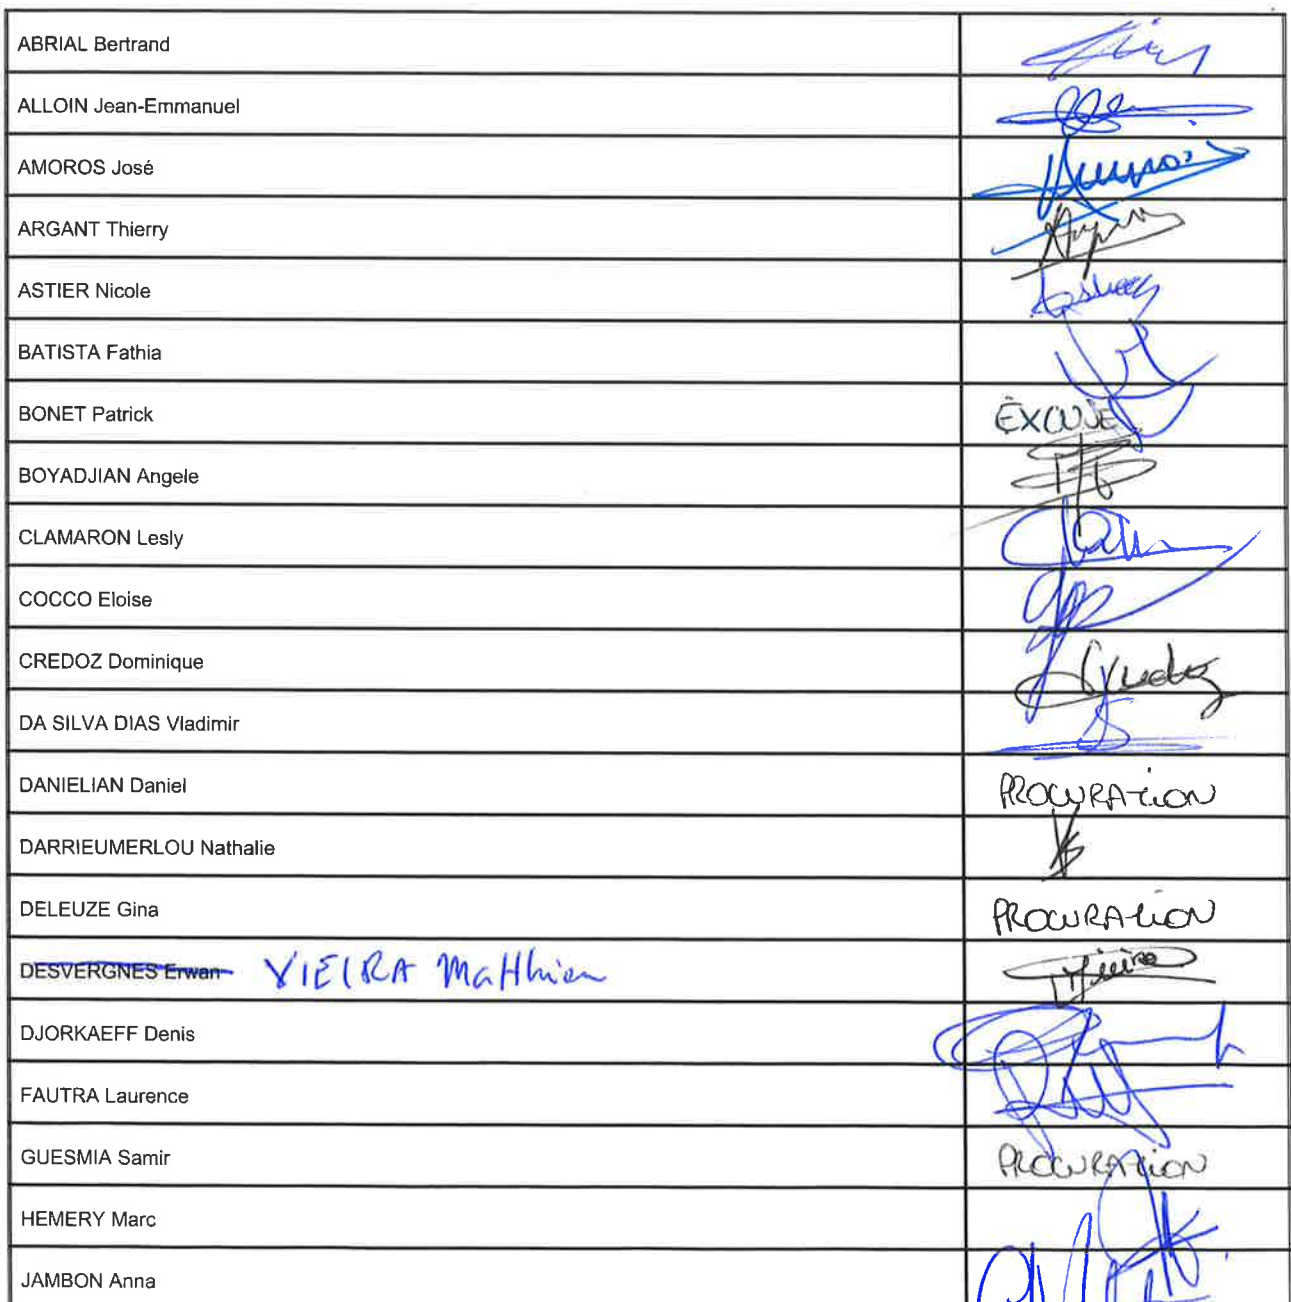 ABRIAL Bertrand
ALLOIN Jean-Emmanuel
AMOROS José
ARGANT Thierry
ASTIER Nicole
BATISTA Fathia
BONET Patrick EXCUSE
BOYADJIAN Angele
CLAMARON Lesly
COCCO Eloise
CREDOZ Dominique
DA SILVA DIAS Vladimir
DANIELIAN Daniel PROCURATION
DARRIEUMERLOU Nathalie
DELEUZE Gina PROCURATION
DESVERGNES Erwan VIEIRA Matthieu
DJORKAEFF Denis
FAUTRA Laurence
GUESMIA Samir PROCURATION
HEMERY Marc
JAMBON Anna